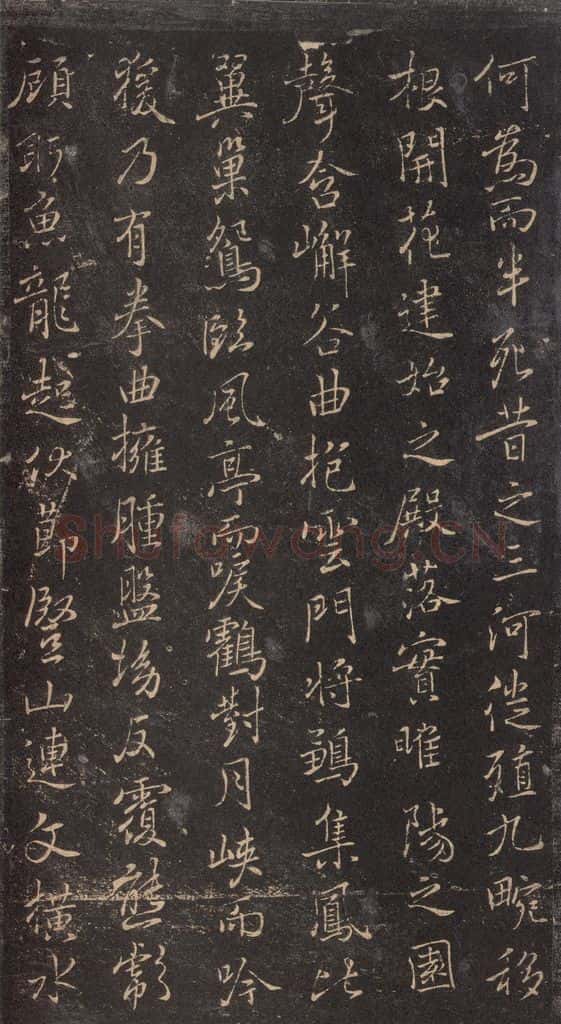 何為而半死昔之三河徙殖九畹移
根開花建始之殿落實睢陽之園
聲含嶰谷曲抱雲門將鶵集鳳比
翼巢鴛臨風亭而唳鶴對月峽而吟
猨乃有拳曲擁腫盤坳反覆熊彪
顧盼魚龍起伏節豎山連文橫水
Shufawang.CN